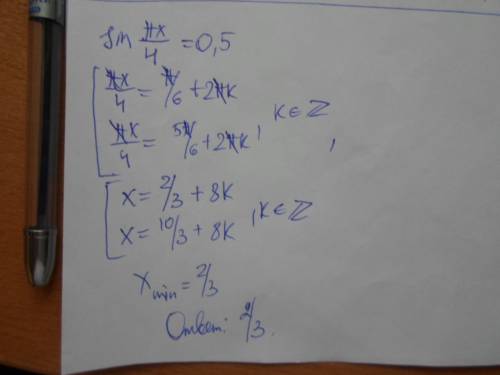 sin πx/4 = 0,5
[ πx/4 = π/6 + 2πk
πx/4 = 5π/6 + 2πk, k∈ℤ,
[ x = 2/3 + 8k
x = 10/3 + 8k, k∈ℤ
x min = 2/3
Ответ: 2/3.